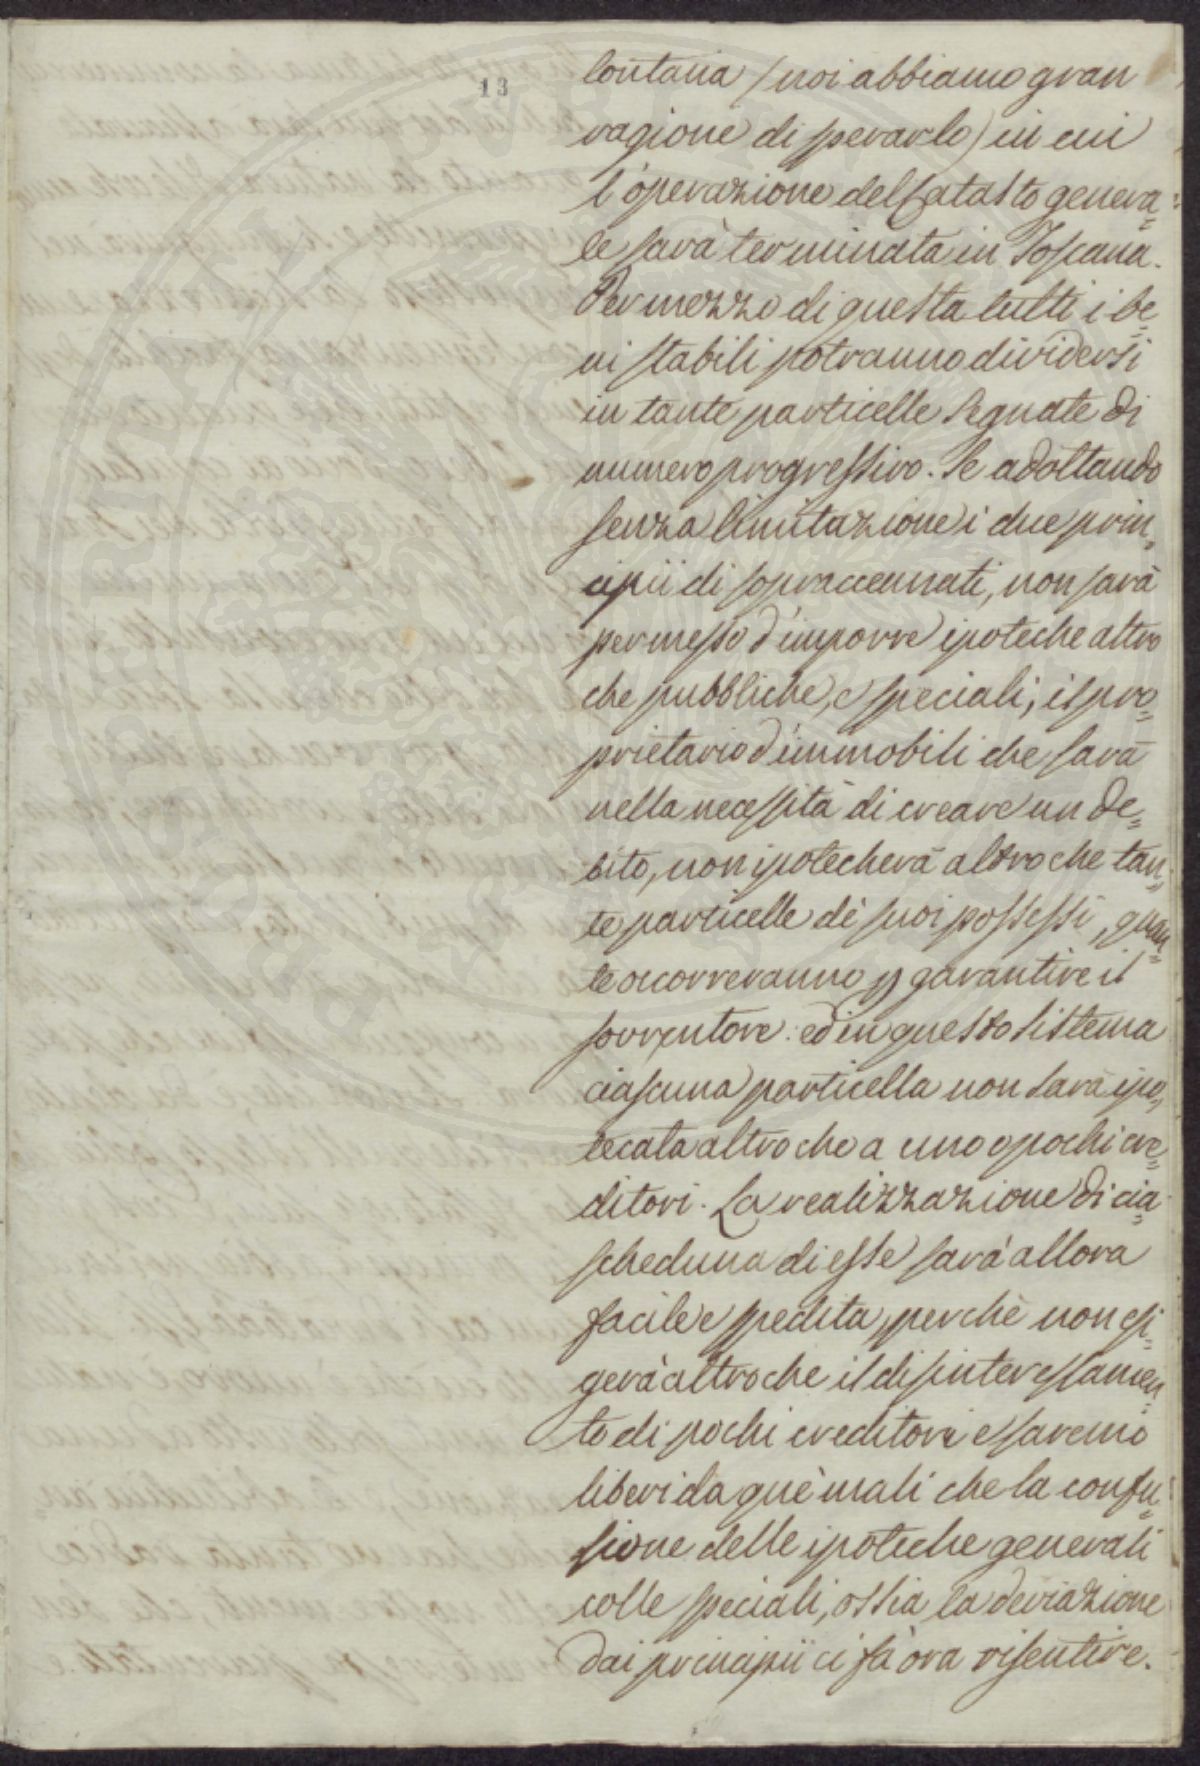 13
lontana (noi abbiamo gran
ragione di sperarlo) in cui
l'operazione del Catasto genera=
le sarà terminata in Toscana.
Per mezzo di questa tutti i be=
ni stabili potranno dividersi
in tante particelle segnate di
numero progressivo. Se adottando
senza limitazione i due prin=
cipii di sopraccennati, non sarà
permesso d'imporre ipoteche altro
che pubbliche, e speciali; il pro=
prietario d'immobili che sarà
nella necessità di creare un de=
bito, non ipotecherà altro che tan=
te particelle de' suoi possessi, quan=
te occorreranno p garantire il
sovventore: ed in questo sistema
ciascuna particella non sarà ipo=
tecata altro che a uno o pochi cre=
ditori. La realizzazione di cia=
scheduna di esse sarà allora
facile e spedita, perchè non esi=
gerà altro che il disinteressamen=
to di pochi creditori e saremo
liberi da que' mali che la confu=
sione delle ipoteche generali
colle speciali, ossia la deviazione
dai principii ci fà ora risentire.